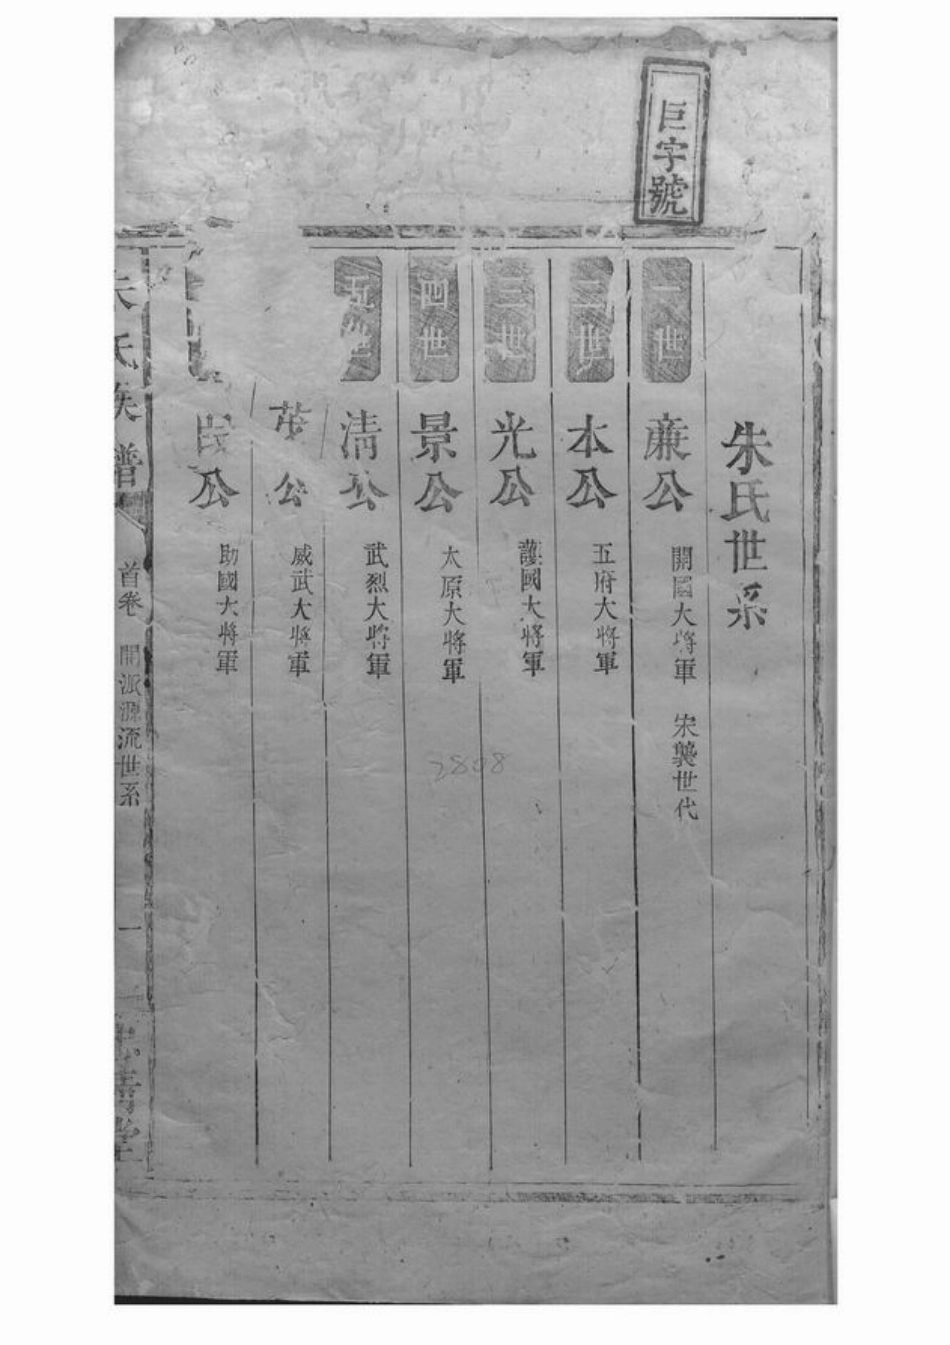 巨字號
朱氏世系
一世
廉公
開國大将軍 宋襲世代
二世
本公
五府大将軍
三世
光公
護國大将軍
四世
景公
太原大将軍
五世
清公
武烈大将軍
茂公
威武大将軍
公
助國大将軍
朱氏族譜
首卷 開派源流世系
一
堂
2808